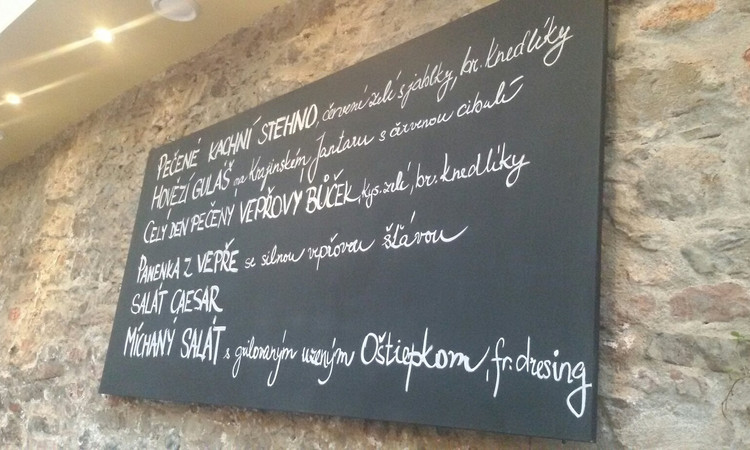 PEČENÉ KACHNÍ STEHNO, červené zelí s jablky, br. knedlíky
HOVĚZÍ GULÁŠ na Krajinském Jantaru s červenou cibulí
CELÝ DEN PEČENÝ VEPŘOVÝ BŮČEK, kys. zelí, br. knedlíky
PANENKA Z VEPŘE se silnou vepřovou šťávou
SALÁT CAESAR
MÍCHANÝ SALÁT s grilovaným uzeným Oštiepkom, fr. dresing